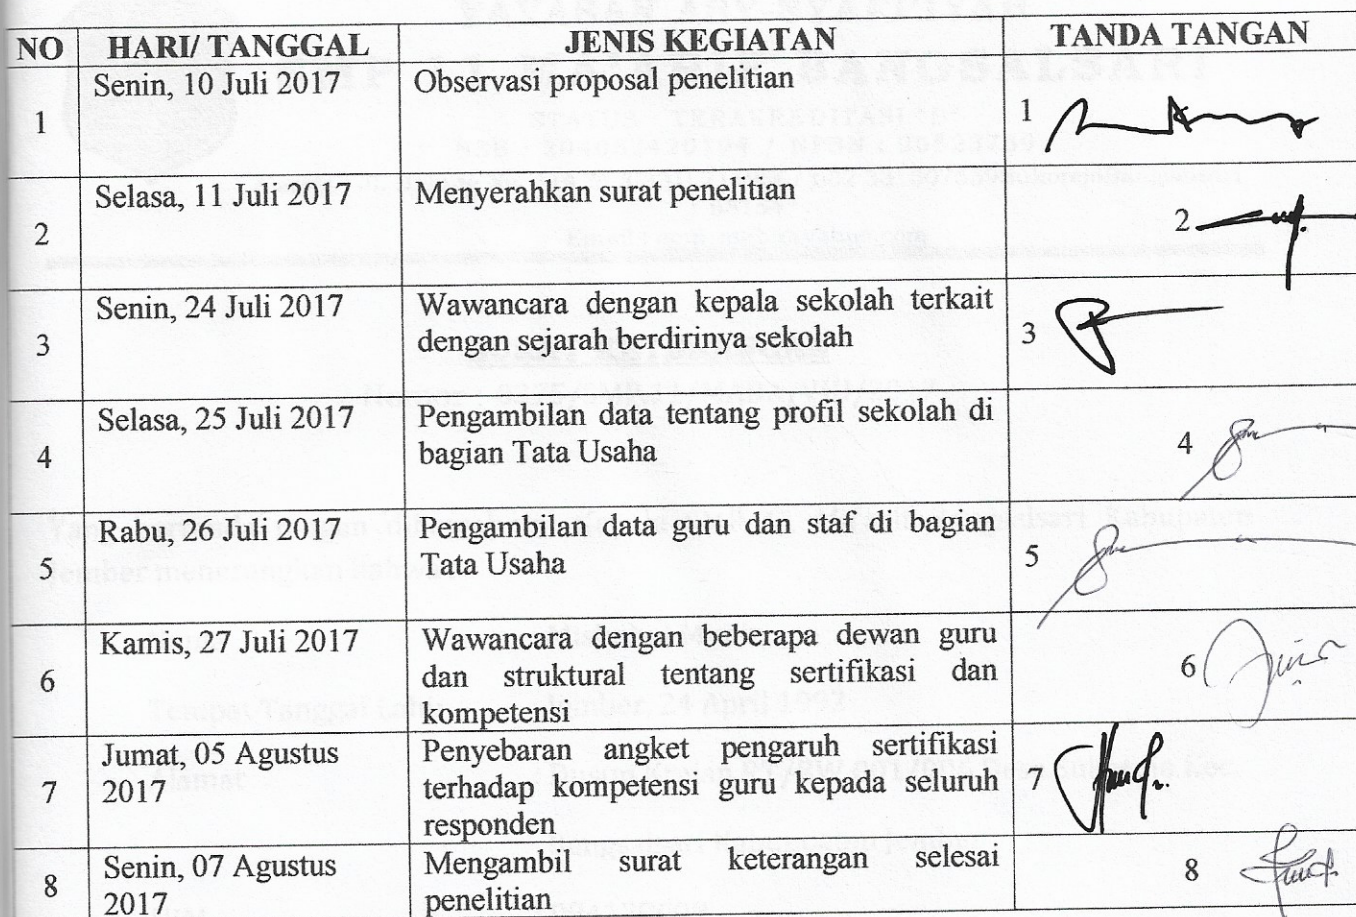 NO HARI/ TANGGAL JENIS KEGIATAN TANDA TANGAN
1 Senin, 10 Juli 2017 Observasi proposal penelitian 1
2 Selasa, 11 Juli 2017 Menyerahkan surat penelitian 2
3 Senin, 24 Juli 2017 Wawancara dengan kepala sekolah terkait
dengan sejarah berdirinya sekolah 3
4 Selasa, 25 Juli 2017 Pengambilan data tentang profil sekolah di
bagian Tata Usaha 4
5 Rabu, 26 Juli 2017 Pengambilan data guru dan staf di bagian
Tata Usaha 5
6 Kamis, 27 Juli 2017 Wawancara dengan beberapa dewan guru
dan struktural tentang sertifikasi dan
kompetensi 6
7 Jumat, 05 Agustus
2017 Penyebaran angket pengaruh sertifikasi
terhadap kompetensi guru kepada seluruh
responden 7
8 Senin, 07 Agustus
2017 Mengambil surat keterangan selesai
penelitian 8